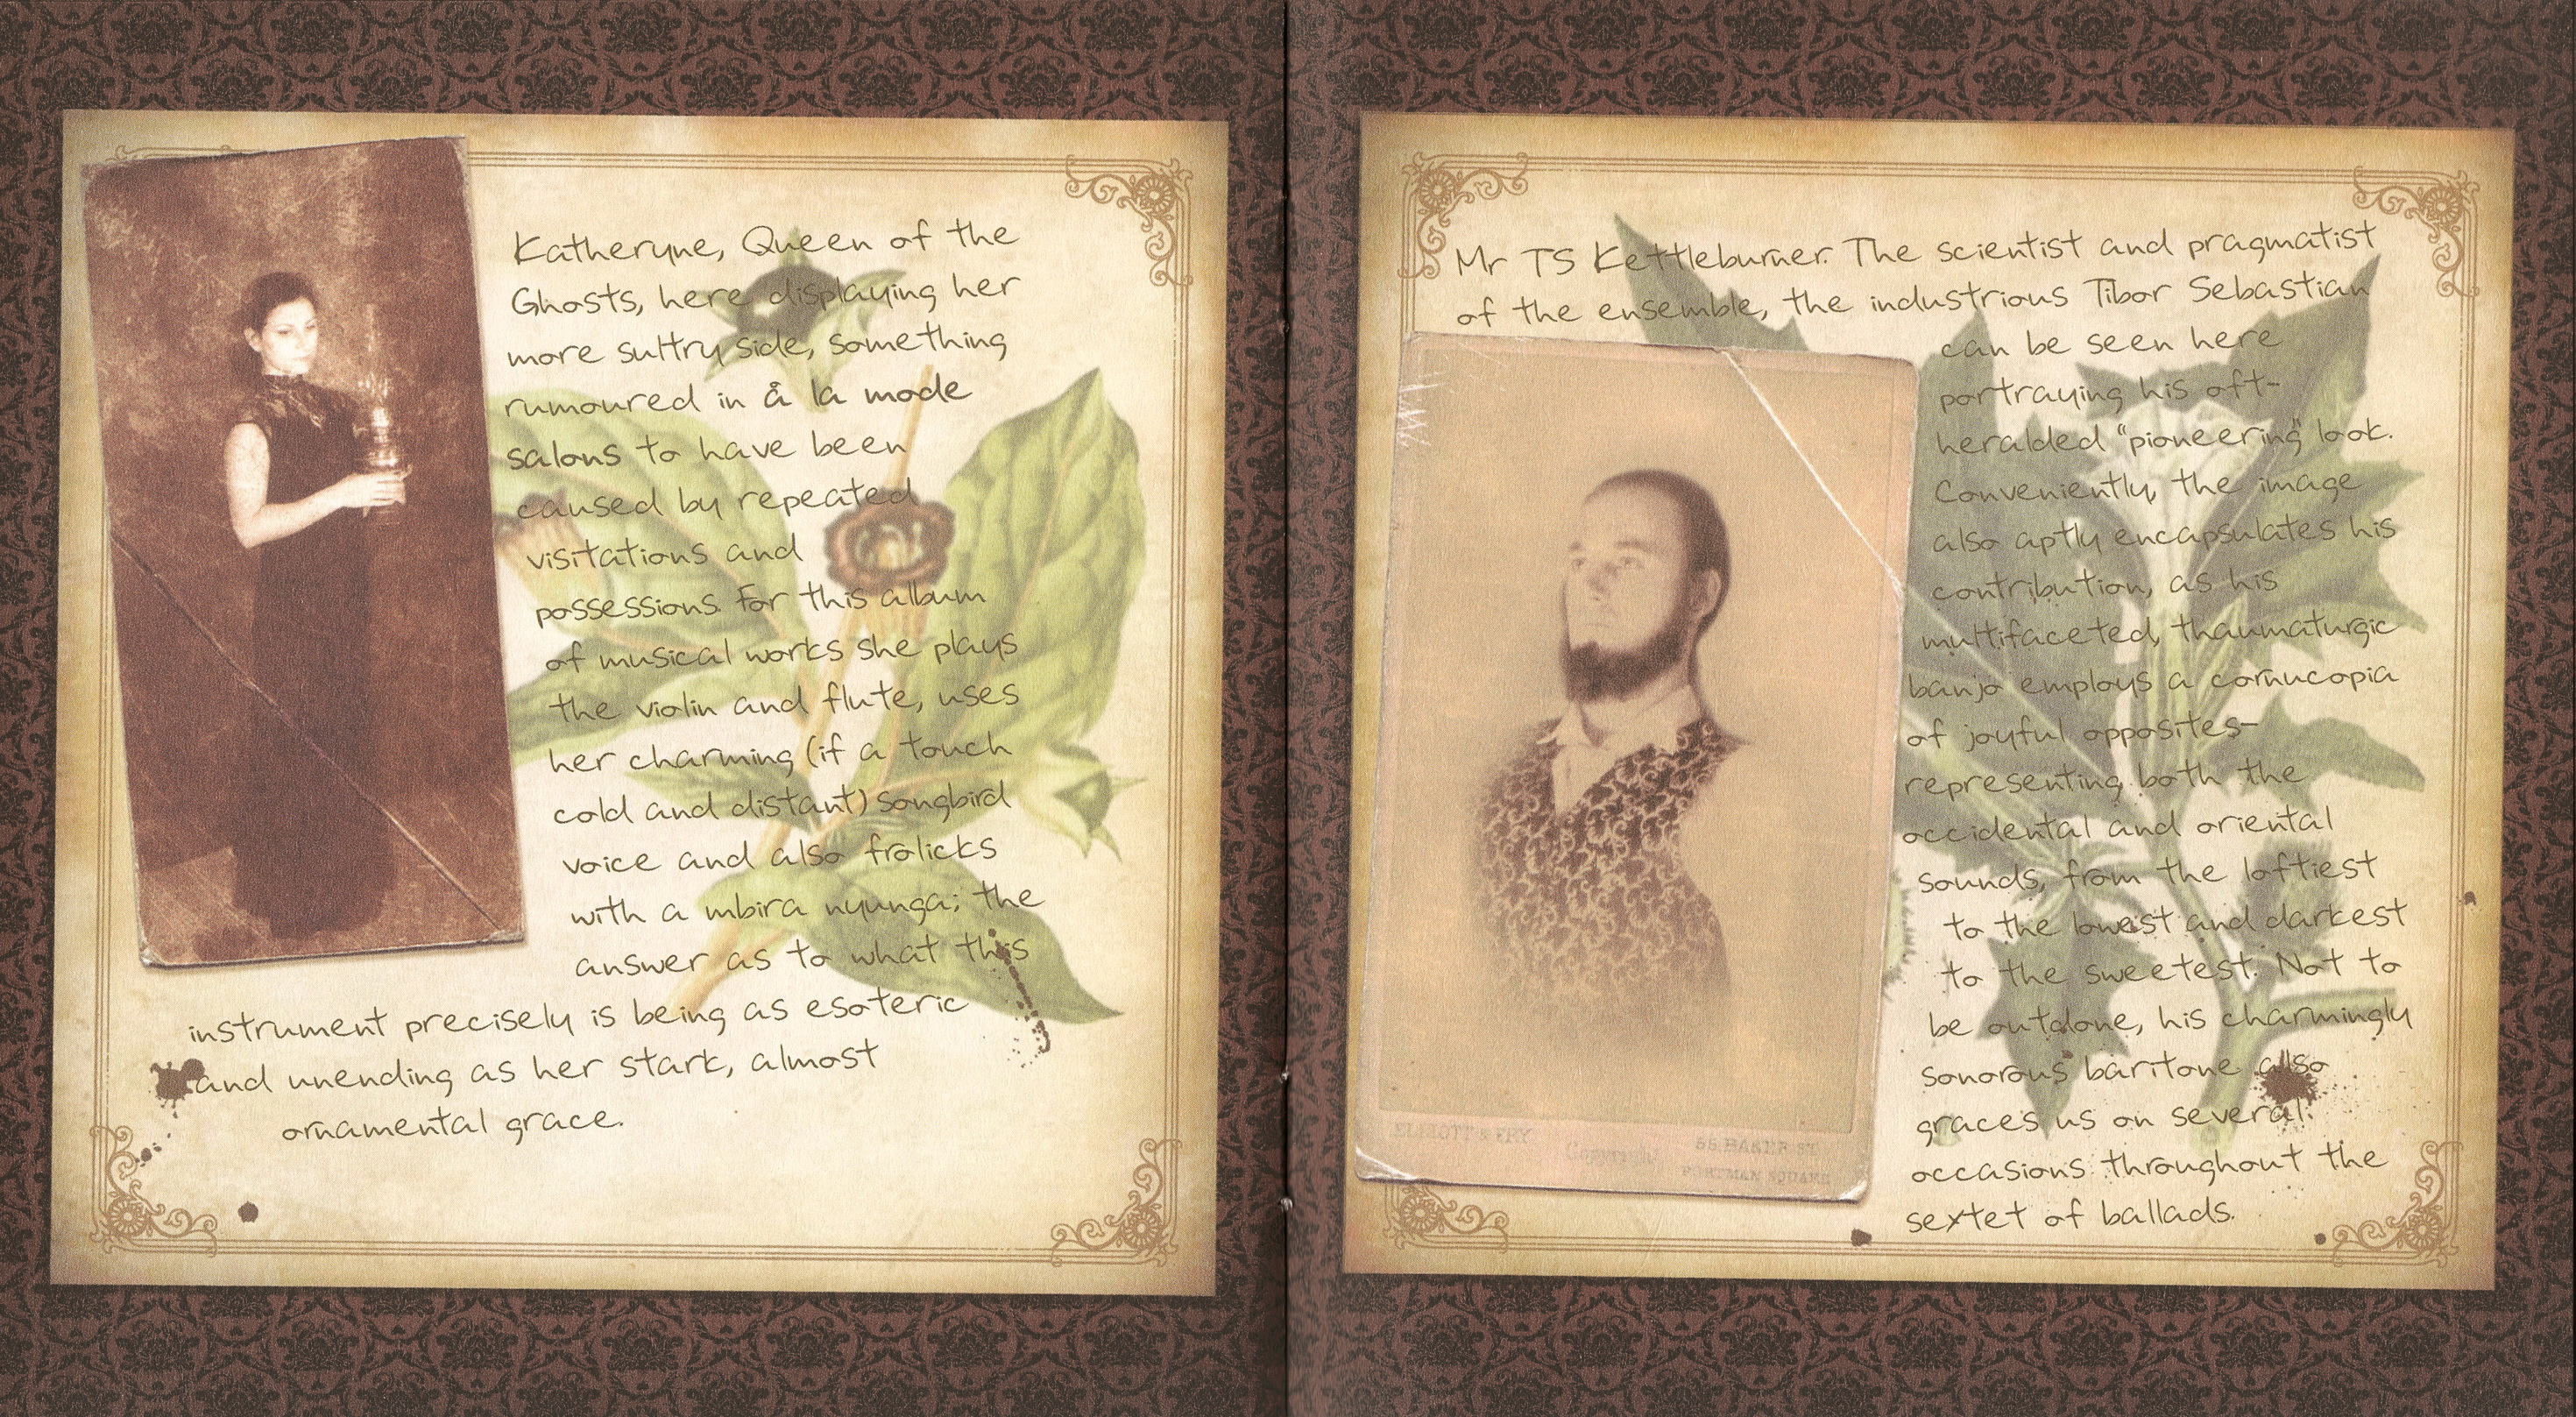 Katheryne, Queen of the
Ghosts, here displaying her
more sultry side, something
rumoured in å la mode
salons to have been
caused by repeated
visitations and
possessions. For this album
of musical works she plays
the violin and flute, uses
her charming (if a touch
cold and distant) songbird
voice and also frolicks
with a mbira nyunga; the
answer as to what this
instrument precisely is being as esoteric
and unending as her stark, almost
ornamental grace.
Mr TS Kettleburner. The scientist and pragmatist
of the ensemble, the industrious Tibor Sebastian
can be seen here
portraying his oft-
heralded "pioneering" look.
Conveniently, the image
also aptly encapsulates his
contribution, as his
multifaceted, thaumaturgic
banjo employs a cornucopia
of joyful opposites-
representing both the
occidental and oriental
sounds, from the loftiest
to the lowest and darkest
to the sweetest. Not to
be outdone, his charmingly
sonorous baritone also
graces us on several
occasions throughout the
sextet of ballads.
ELLIOTT & FRY Copyright 55 BAKER ST
PORTMAN SQUARE